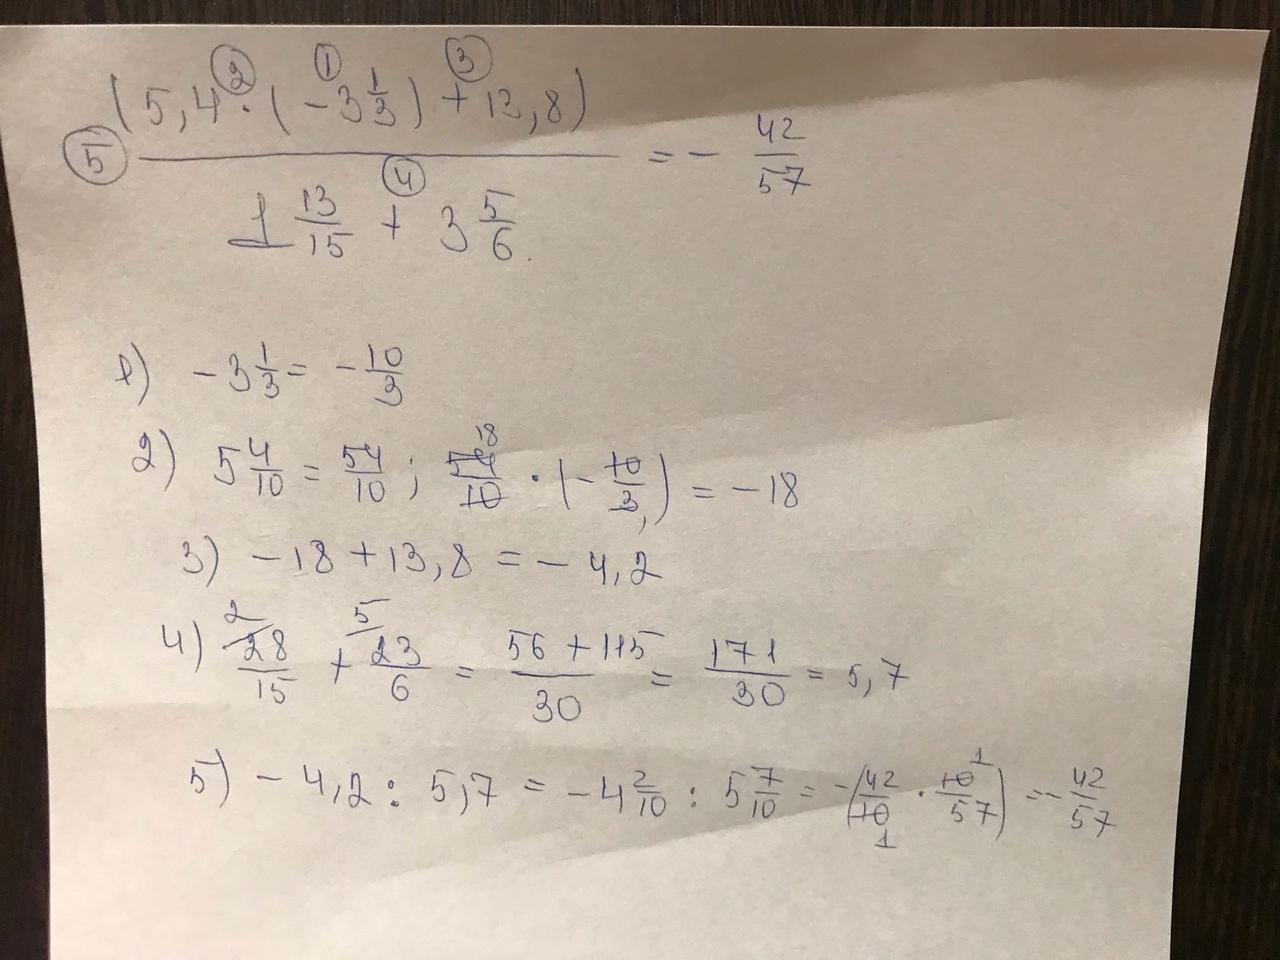 (5,4 ② · (-3 1/3) ① + ③ 13,8)
⑤ ——— = - 42/57
1 13/15 + ④ 3 5/6
1) -3 1/3 = - 10/3
2) 5 4/10 = 54/10 ; 54/10 18 · (- 10/3 1) = -18
3) -18 + 13,8 = -4,2
4) 2 28/15 + 5 23/6 = 56+115/30 = 171/30 = 5,7
5) -4,2 : 5,7 = -4 2/10 : 5 7/10 = -(42/10 1 · 10/57 1) = - 42/57